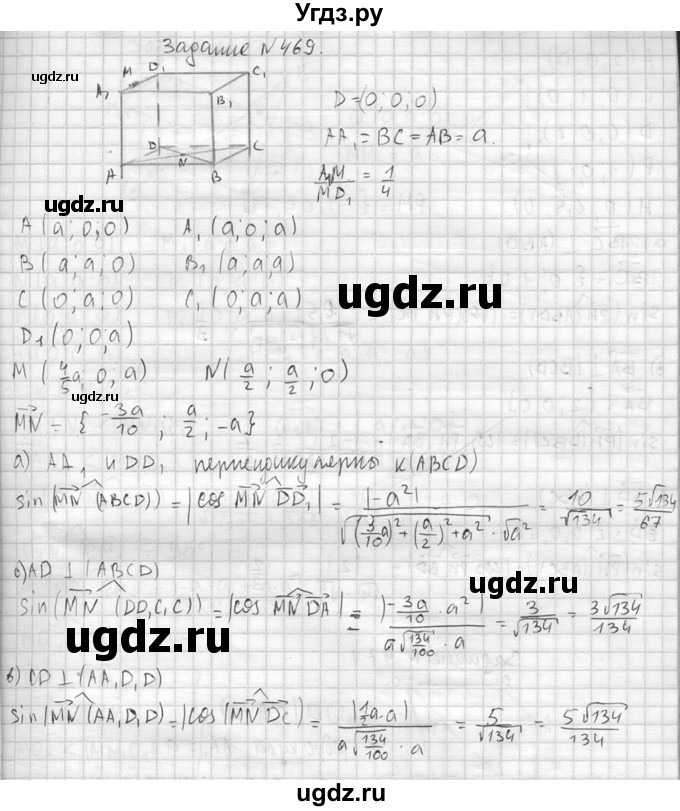 Угдз.ру
Задание №469.
ugdz.ru
M D₁ C₁
A₁ B₁
D=(0; 0; 0)
AA₁ = BC = AB = a.
D C
N
A B
A₁M/MD₁ = 1/4
ugdz.ru
A (a; 0; 0) A₁ (a; 0; a)
B (a; a; 0) B₁ (a; a; a)
C (0; a; 0) C₁ (0; a; a)
ugdz.ru
D₁ (0; 0; a)
M (4/5 a; 0; a) N (a/2; a/2; 0)
ugdz.ru
MN = { -3a/10 ; a/2 ; -a}
а) AA₁ и DD₁ перпендикулярны к (ABCD)
sin(MN (ABCD)) = |cos MN DD₁| = |-a²| / √((3/10 a)² + (a/2)² + a²) · √a² = 10/√134 = 5√134/67
ugdz.ru
AD ⊥ (ABCD)
sin(MN (DD₁C₁C)) = |cos MN DA| = |-3a/10 · a²| / a√(134/100) · a = 3/√134 = 3√134/134
ugdz.ru
в) CD ⊥ (AA₁D₁D)
sin(MN (AA₁D₁D) = |cos(MN DC)| = |1/2 a·a| / a√(134/100) · a = 5/√134 = 5√134/134
ugdz.ru